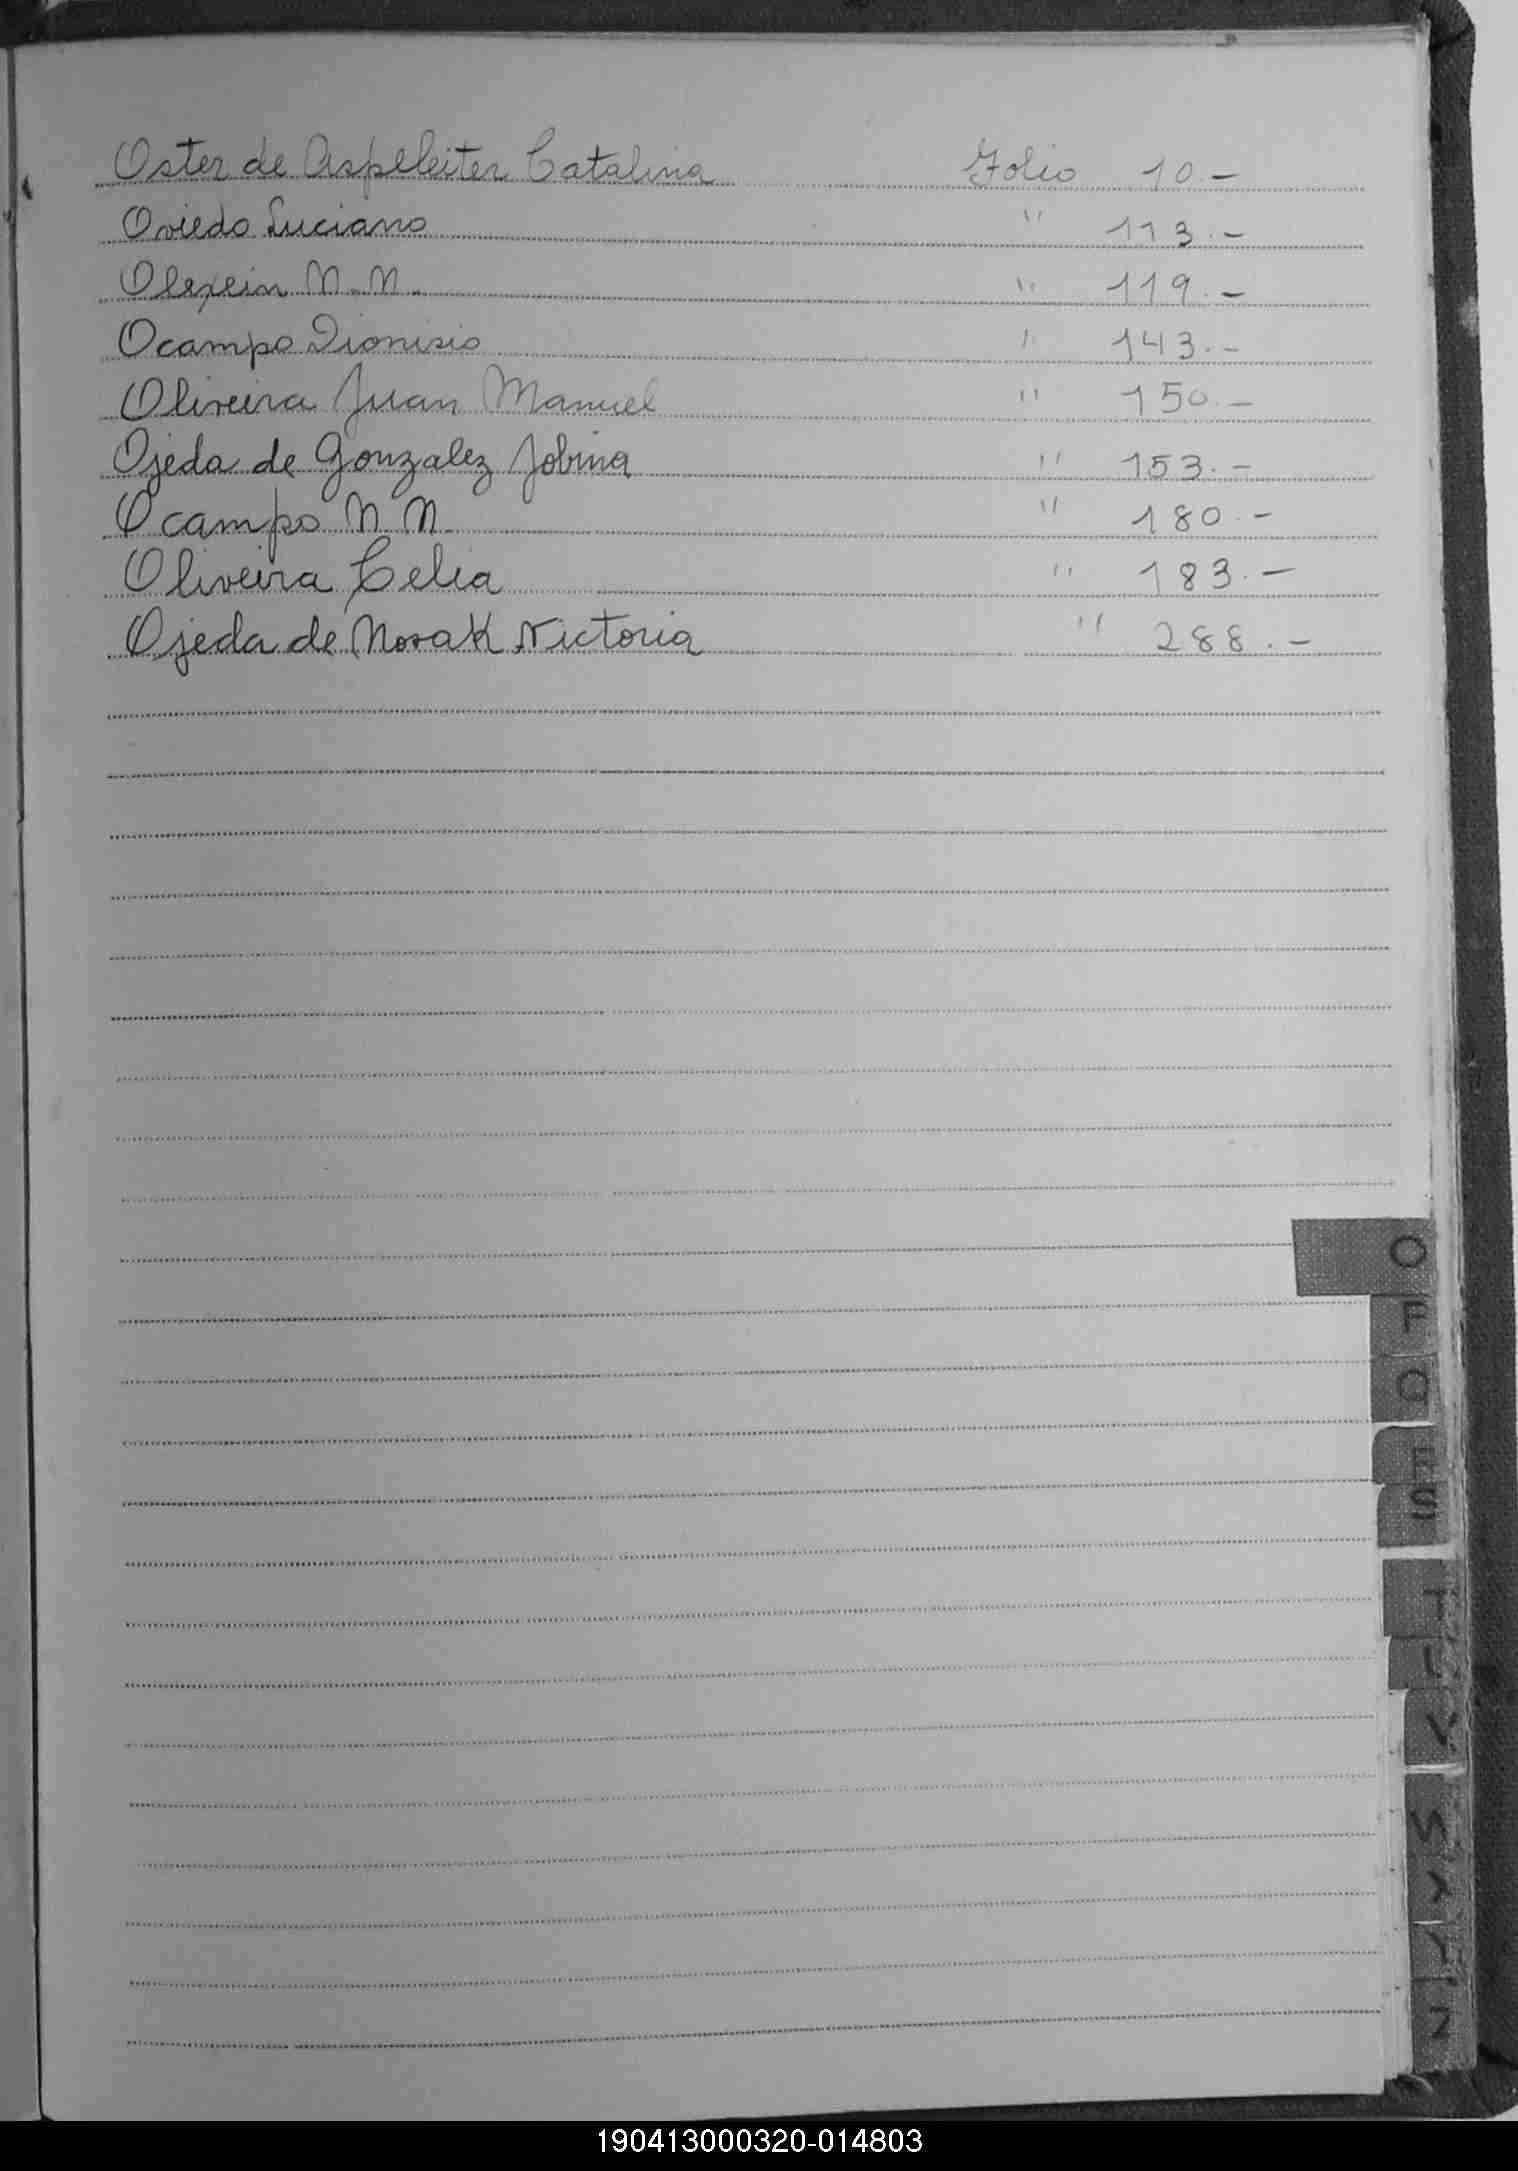 Oster de Aspelleiter Catalina Folio 10.-
Oviedo Luciano " 113.-
Olexein N.N. " 119.-
Ocampo Dionisio " 143.-
Oliveira Juan Manuel " 150.-
Ojeda de Gonzalez Jobina " 153.-
Ocampo N.N. " 180.-
Oliveira Celia " 183.-
Ojeda de Novak Victoria " 288.-
O
P
Q
R
S
T
V
Z
190413000320-014803